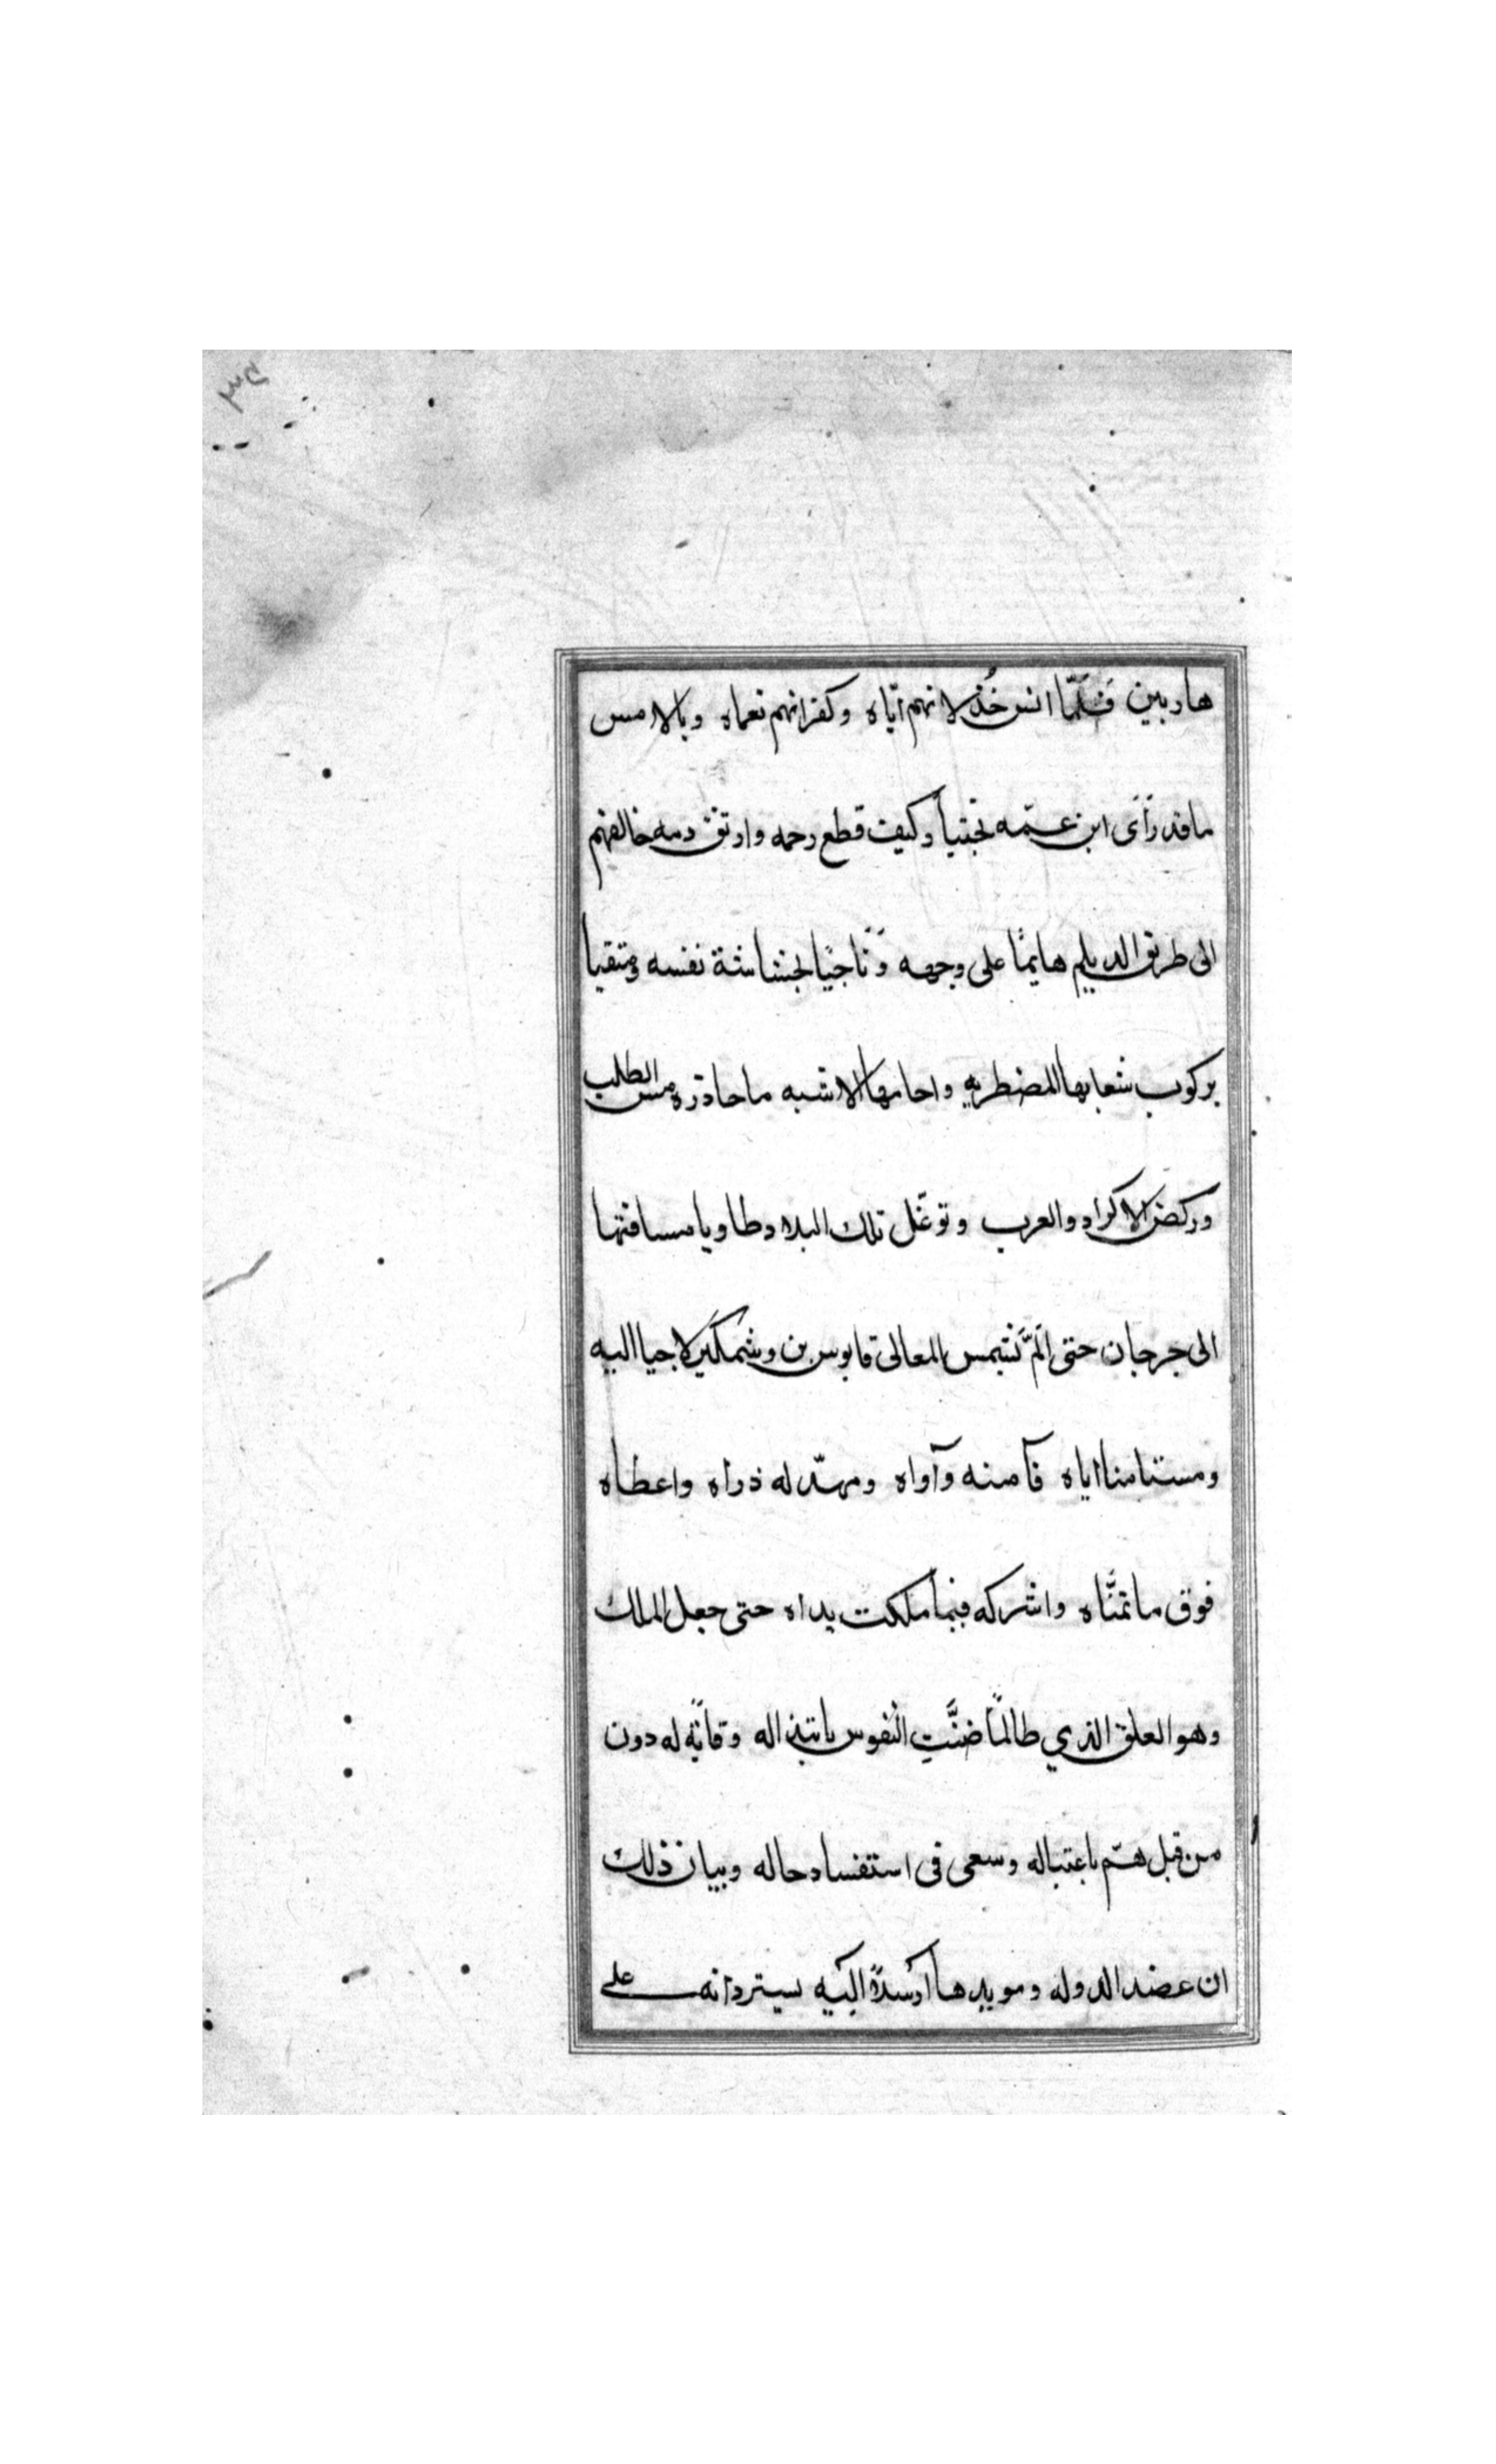 هاربين فَلَمّا انس خُذلانهم ايّاه وكفرانهم نعماه وبالامس
ما قد رَأى ابن عمّه بختياراً وكيف قطع رحمه وارتق دمه خالفهم
الى طريق الديلم هايمًا على وجهه وَنَاجيًا بحشاشة نفسه ومتقيا
بركوب شعابها المضطربه واحامها الاشبه ما حاذره من الطلب
وركض الاكراد والعرب وتوغّل تلك البلاد طاويا مسافتها
الى جرجان حتى اَلَمَّ بشمس المعالى قابوس بن وشمكير لاجيا اليه
ومستامنا اياه فآمنه وآواه ومهّد له ذراه واعطاه
فوق ما تمنَّاه واشركه فيما ملكت يداه حتى جعل الملك
وهو العلق الذي طالمَا ضنَّتِ النّفوس بابتذاله وقايَةً له دون
من قبل همّ باغتياله وسعى فى استفساد حاله وبيان ذلك
ان عضد الدوله ومويدها ارسلا اليه يستردانه على